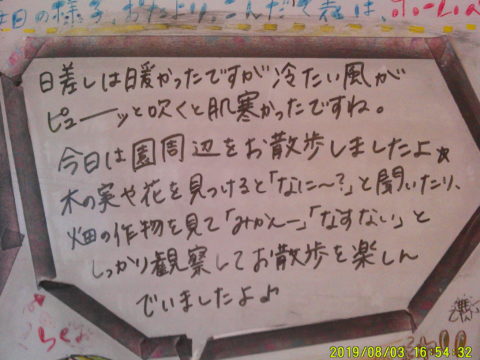 毎日の様子、おたより、こんだて表は、ホームペ
日差しは暖かったですが冷たい風が
ピューーッと吹くと肌寒かったですね。
今日は園周辺をお散歩しましたよ☆
木の実や花を見つけると「なに〜?」と聞いたり、
畑の作物を見て「みかんー」「なすない」と
しっかり観察してお散歩を楽しん
でいましたよ♪
2019/08/03 16:54:32